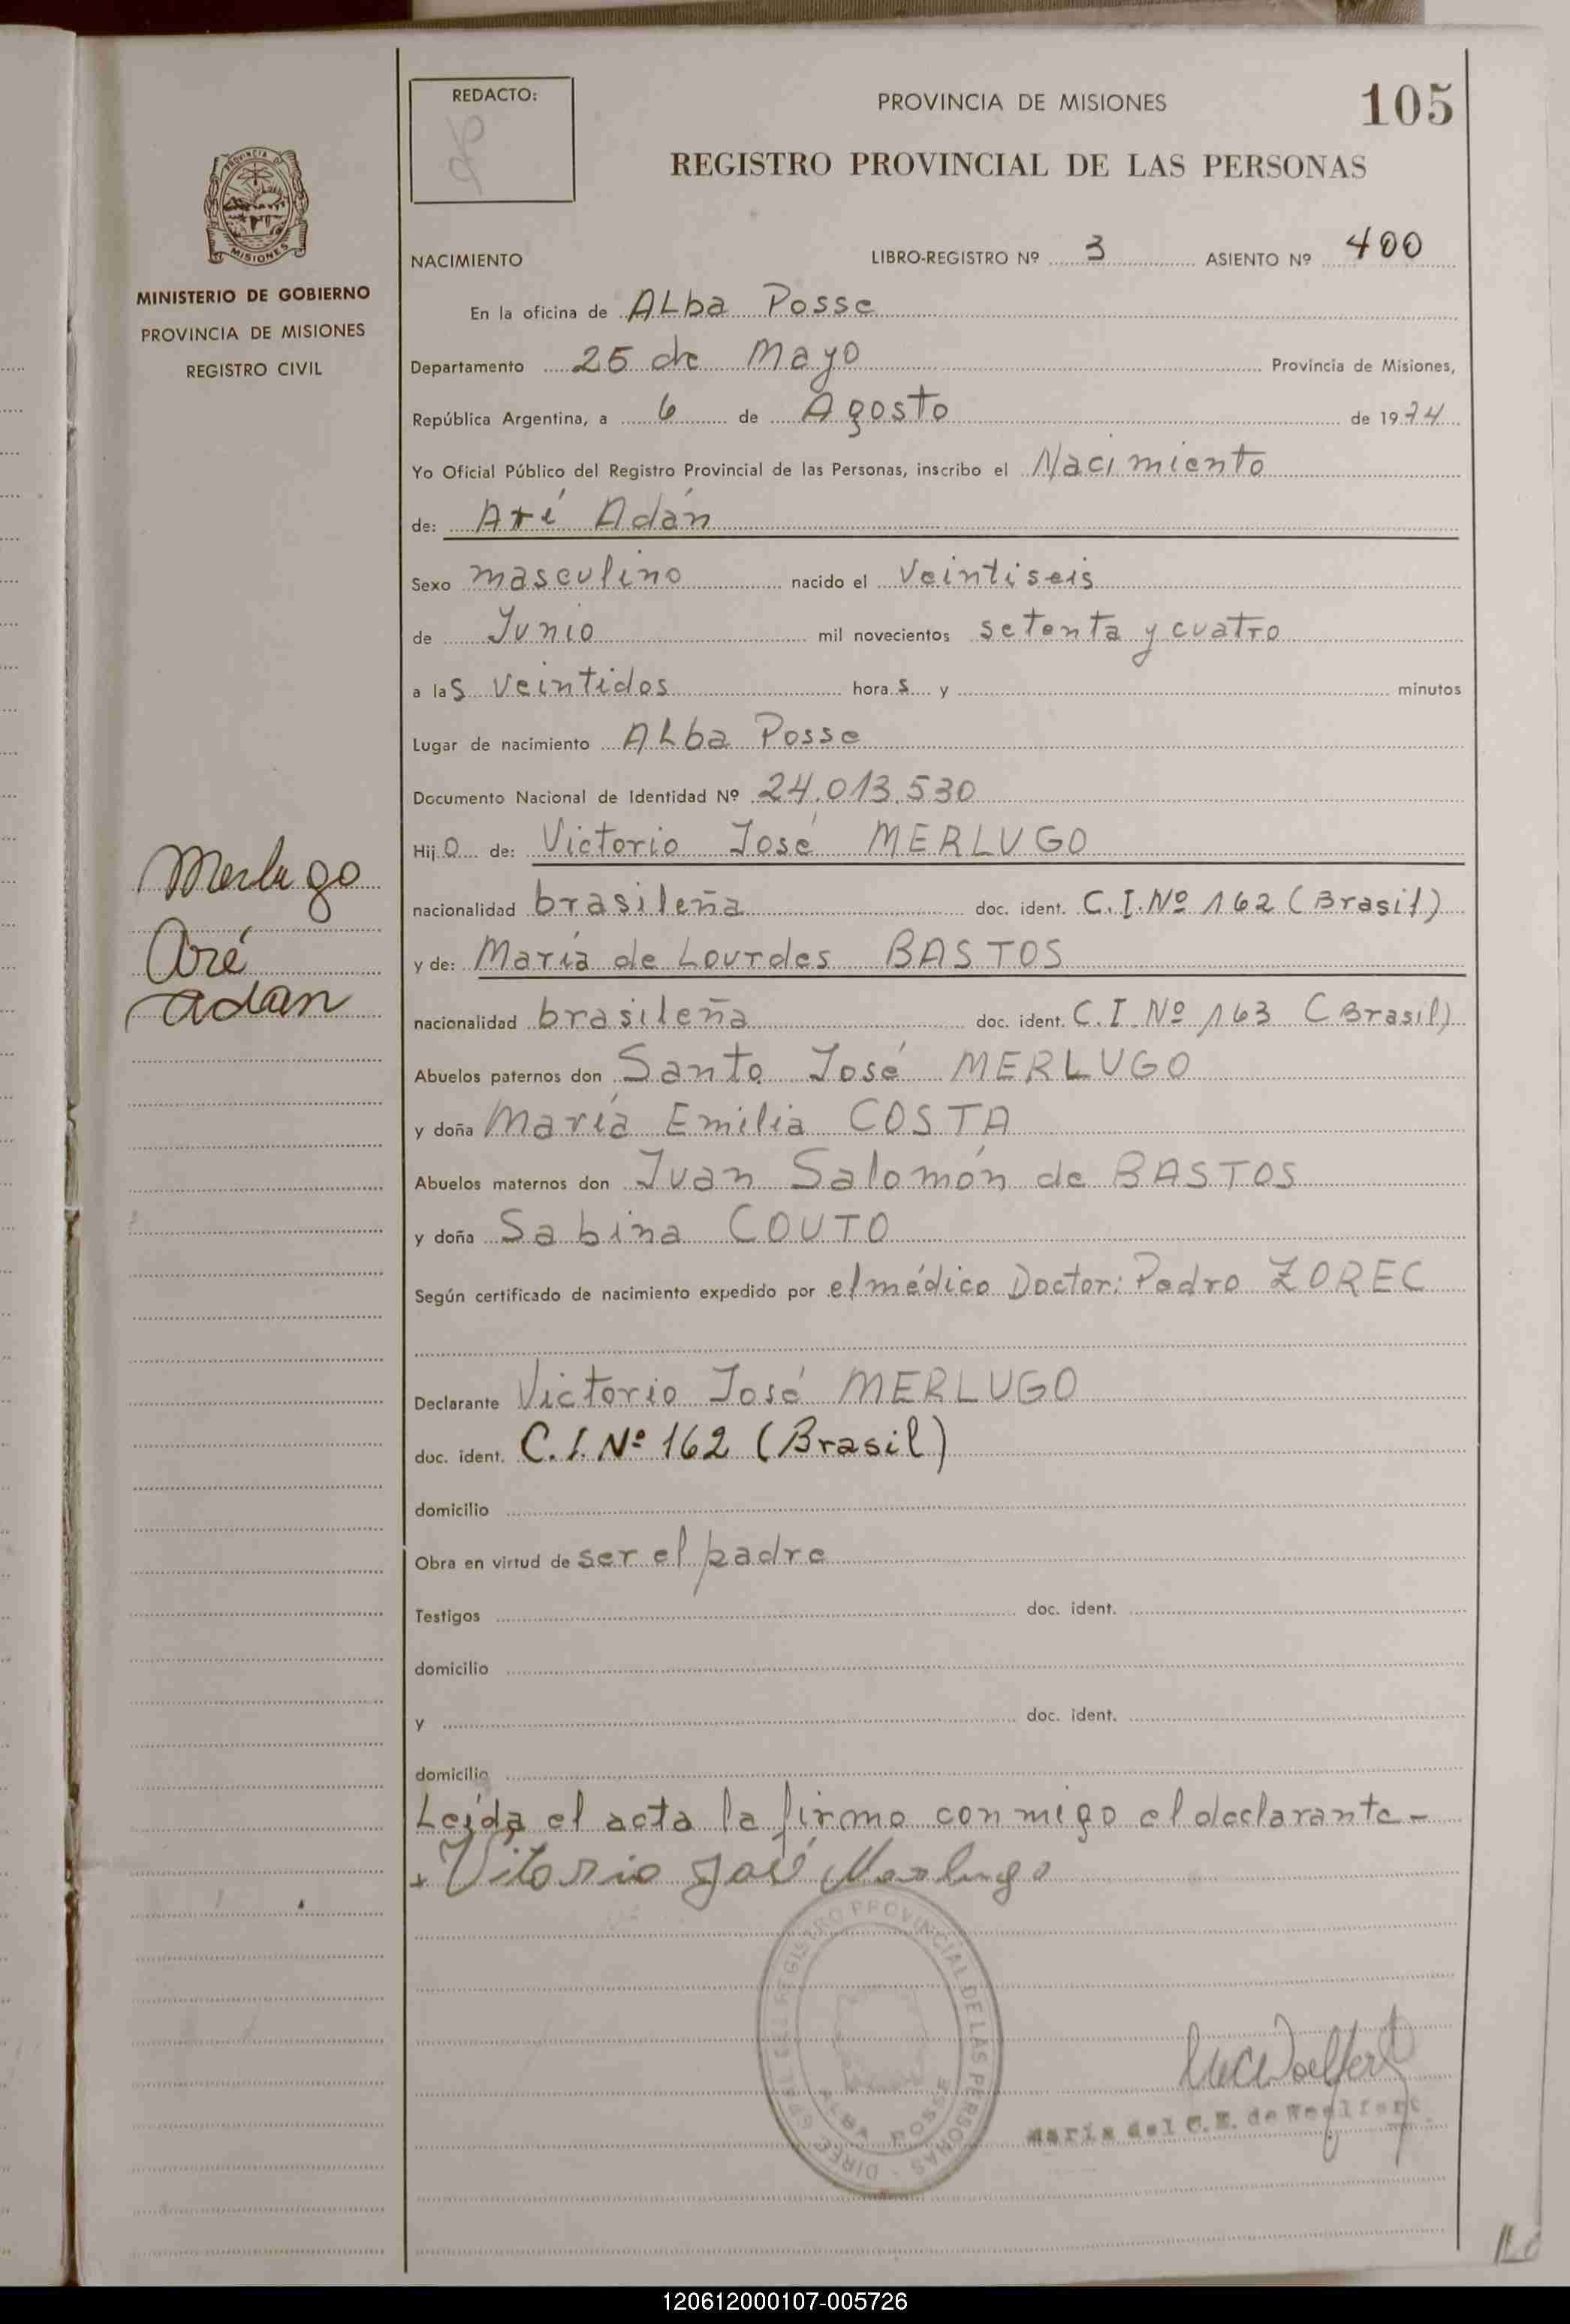 REDACTO:
PROVINCIA DE MISIONES
105
REGISTRO PROVINCIAL DE LAS PERSONAS
PROVINCIA DE
MISIONES
MINISTERIO DE GOBIERNO
PROVINCIA DE MISIONES
REGISTRO CIVIL
NACIMIENTO LIBRO-REGISTRO Nº 3 ASIENTO Nº 400
En la oficina de Alba Posse
Departamento 25 de Mayo Provincia de Misiones,
República Argentina, a 6 de Agosto de 1974
Yo Oficial Público del Registro Provincial de las Personas, inscribo el Nacimiento
de: Aré Adán
Sexo masculino nacido el Veintiseis
de Junio mil novecientos setenta y cuatro
a las veintidos horas y minutos
Lugar de nacimiento Alba Posse
Documento Nacional de Identidad Nº 24.013.530
Hijo de: Victorio José MERLUGO
nacionalidad brasileña doc. ident. C.I.Nº 162 (Brasil)
y de: María de Lourdes BASTOS
nacionalidad brasileña doc. ident. C.I.Nº 163 (Brasil)
Abuelos paternos don Santo José MERLUGO
y doña María Emilia COSTA
Abuelos maternos don Juan Salomón de BASTOS
y doña Sabina COUTO
Según certificado de nacimiento expedido por el médico Doctor: Pedro ZOREC
Declarante Victorio José MERLUGO
doc. ident. C.I.Nº 162 (Brasil)
domicilio
Obra en virtud de ser el padre
Testigos doc. ident.
domicilio
y doc. ident.
domicilio
Leída el acta la firma conmigo el declarante-
x Vitorio José Merlugo
Merlugo
Aré
adan
REGISTRO PROVINCIAL DE LAS PERSONAS
ALBA POSSE
María del C. M. de Woelfert
120612000107-005726